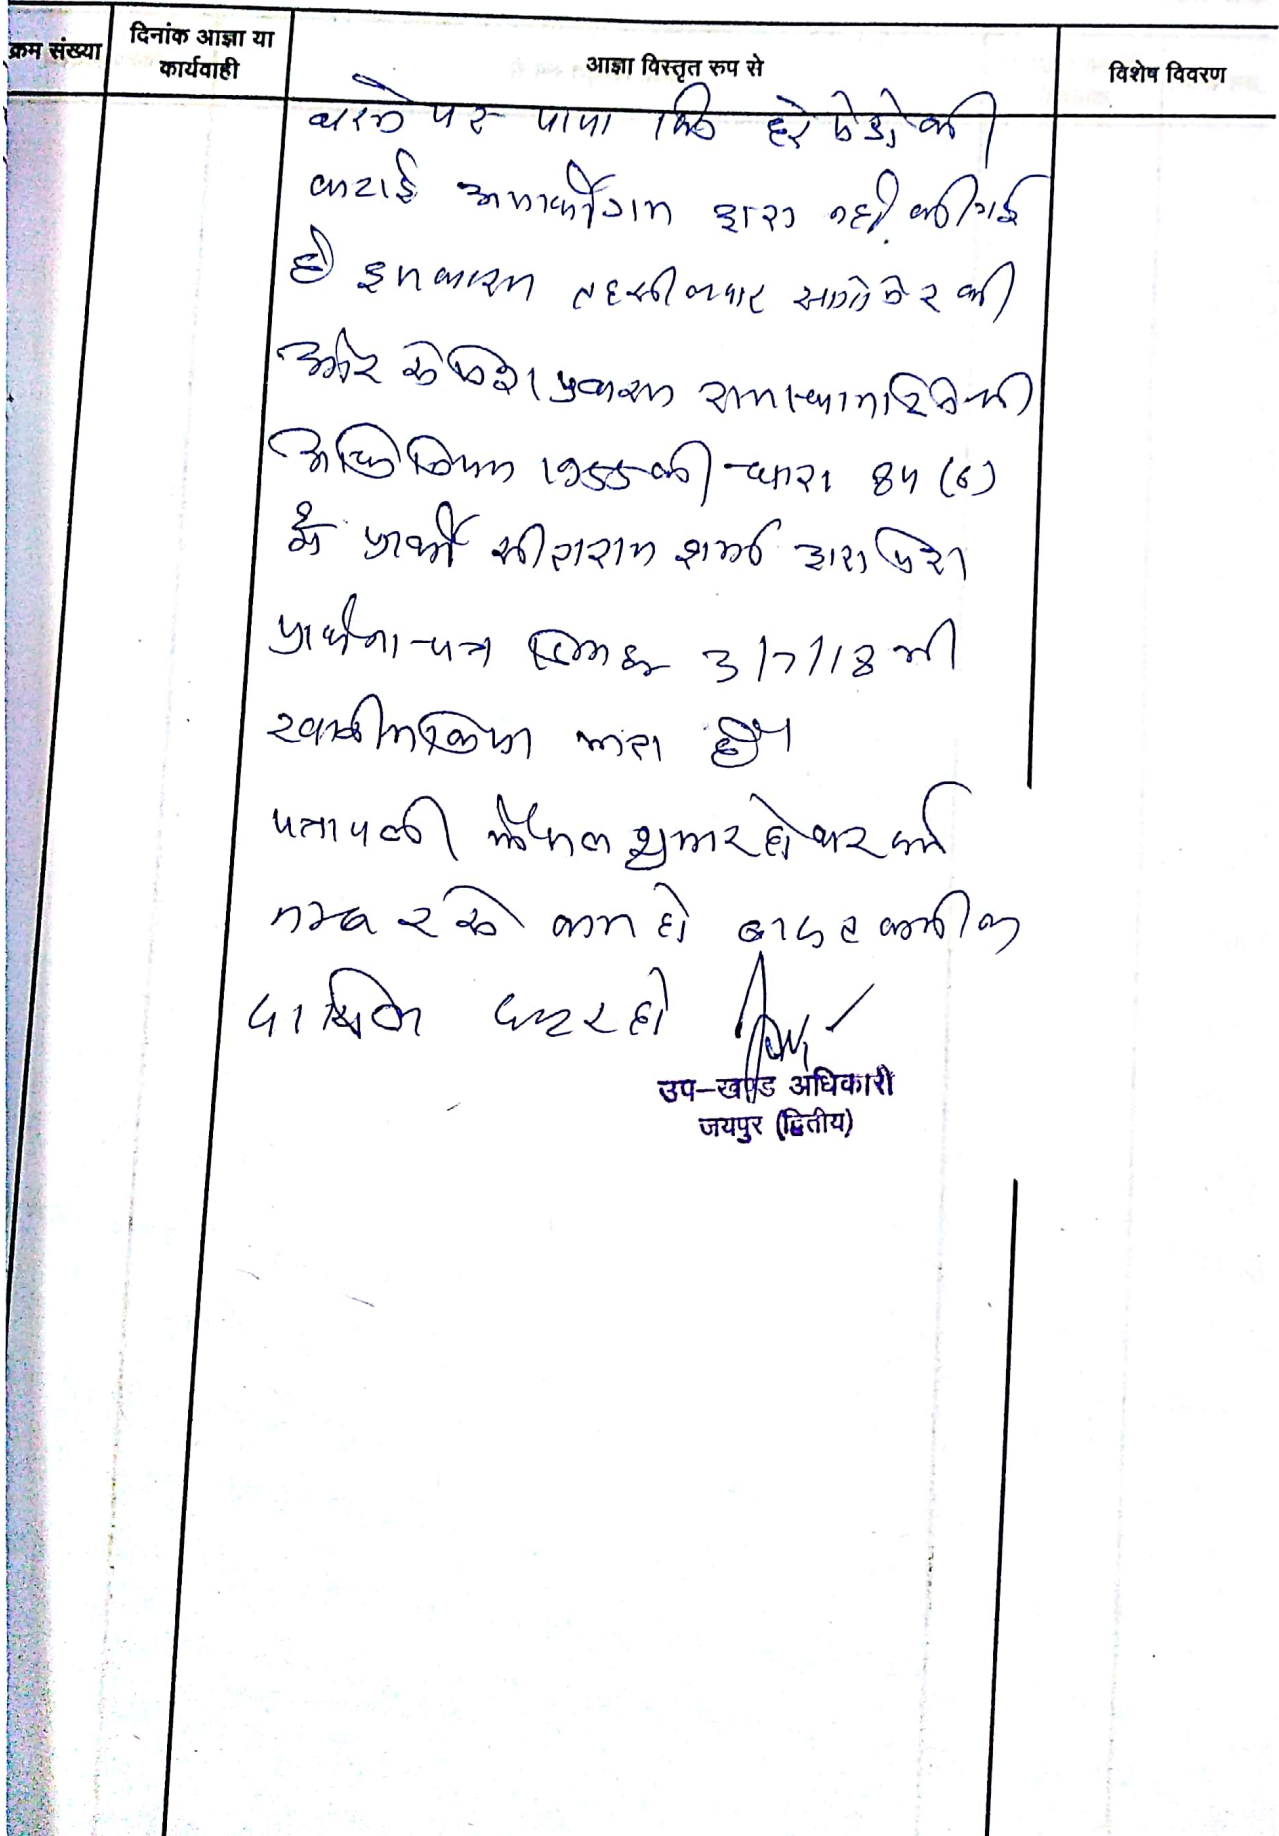 क्रम संख्या
दिनांक आज्ञा या
कार्यवाही
आज्ञा विस्तृत रुप से
विशेष विवरण
करने पर पाया कि हरे पेडो की
कटाई अप्रार्थीगण द्वारा नही की गई
है इस कारण तहसीलदार सांगानेर की
ओर से पेश प्रकरण राजस्थान टिनेन्सी
अधिनियम 1955 की धारा 84 (6)
में प्रार्थी सीताराम शर्मा द्वारा पेश
प्रार्थना-पत्र दिनांक 3/7/18 को
किया जाता है।
पत्रावली फैसल शुमार होकर दर्ज
नम्बर से कम हो बाद तकमील
दाखिल दफ्तर हो
उप-खण्ड अधिकारी
जयपुर (द्वितीय)